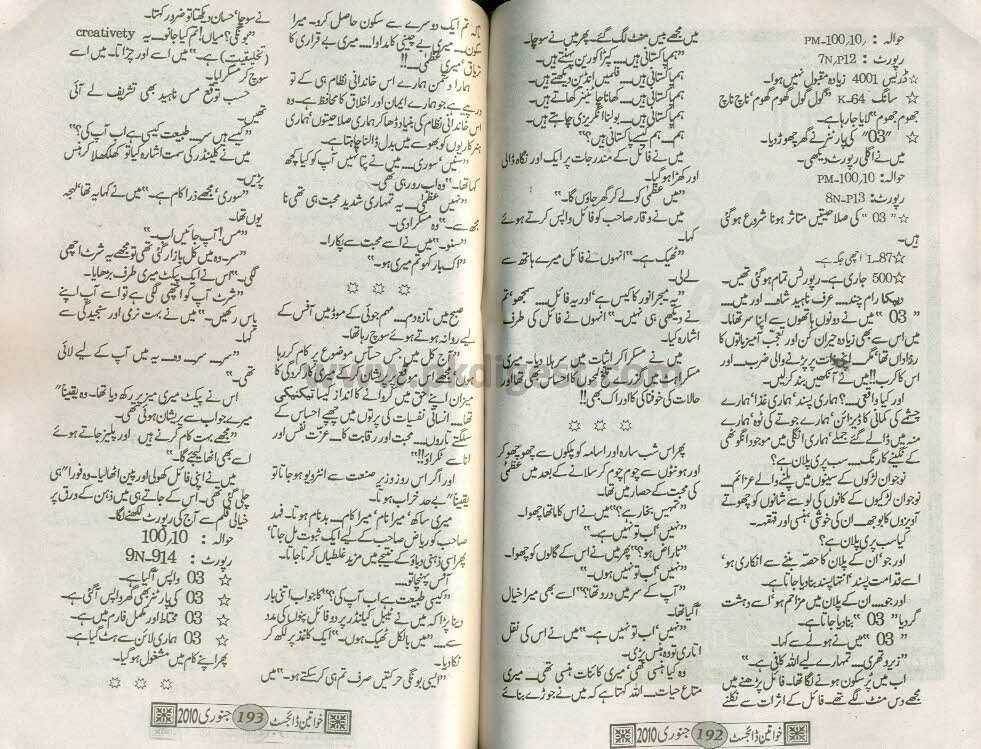 حوالہ : PM-100,10,
رپورٹ : 7N,P12
☆ ڈریس 4001 زیادہ مقبول نہیں ہوا۔
☆ سانگ K-64 "گول گول گھوم گھوم" ناچ ناچ
جھوم جھوم" لایا جا رہا ہے۔
☆ "03" کی پارٹنر نے گھر چھوڑ دیا۔
میں نے اگلی رپورٹ دیکھی۔
حوالہ: PM-100,10
رپورٹ: 8N-P13
☆ "03" کی صلاحیتیں متاثر ہونا شروع ہو گئی
ہیں۔
☆ I-87 اچھی جگہ ہے
☆ 500 جاری ہے۔ رپورٹس تمام ہو گئی تھیں۔
دیپکا رام چند.... عرف ناہید شاہ.... اور میں....
" 03 " میں نے دونوں ہاتھوں سے اپنا سر تھاما۔
میں اس سے بھی زیادہ حیران کن اور تعجب آمیز باتوں کا
اس کا کرب!! میں نے آنکھیں بند کر لیں۔
اور کیا واقعی....؟ ہماری پسند' ہماری غذا' ہمارے
چشمے کی کمانی کا ڈیزائن' ہمارے جوتے کی ٹوہ' ہمارے
منہ میں ڈالے گئے جملے' ہماری انگلی میں موجود انگوٹھی
کے نگینے کا رنگ.... سب پری پلان ہے؟
نوجوان لڑکوں کے سینوں میں پلنے والے عزائم....
نوجوان لڑکیوں کے کانوں کی لو سے شانوں کو چھوتے
آویزوں کا بوجھ۔ ان کی خوشی' ہنسی اور قہقہہ۔
کیا سب پری پلان ہے؟
اور جو' ان کے پلان کا حصہ بننے سے انکاری ہو'
اسے قدامت پسند' انتہا پسند بنا دیا جاتا ہے۔
اور جو.... ان کے پلان میں مزاحم ہو' اسے دہشت
گرد یا "03" بنا دیا جاتا ہے۔
" 03 " میں نے ہولے سے کہا۔
"زیرو تھری.... تمہارے لیے اللہ کافی ہے۔"
اب میں پُرسکون ہونے لگا تھا۔ فائل پڑھنے میں
مجھے دس منٹ لگے تھے۔ فائل کے اثرات سے نکلنے
میں مجھے بیس منٹ لگ گئے۔ پھر میں نے سوچا۔
"ہم پاکستانی ہیں.... کپڑا کورین پہنتے ہیں۔
ہم پاکستانی ہیں.... فلمیں انڈین دیکھتے ہیں۔
ہم پاکستانی ہیں.... کھانا چائنیز کھاتے ہیں۔
ہم پاکستانی ہیں.... بولنا انگریزی چاہتے ہیں۔
ہم.... ہم کیسے پاکستانی ہیں؟"
میں نے فائل کے مندرجات پر ایک اور نگاہ ڈالی
اور کھڑا ہو گیا۔
"میں عظمیٰ کو لے کر گھر جاؤں گا۔"
میں نے وقار صاحب کو فائل واپس کرتے ہوئے
کہا۔
"ٹھیک ہے۔" انہوں نے فائل میرے ہاتھ سے
لے لی۔
"یہ میجر انور کا کیس ہے' اور یہ فائل.... سمجھو' تم
نے دیکھی ہی نہیں۔" انہوں نے فائل کی طرف
اشارہ کیا۔
میں نے مسکرا کر اثبات میں سر ہلا دیا۔ میری
حالات کی خوفناکی کا ادراک بھی!!
☼ ☼ ☼
پھر اس شب سارہ اور اسامہ کو پلکوں سے چھو چھو کر
اور ہونٹوں سے چوم چوم کر سلانے کے بعد میں عظمیٰ
کی محبت کے حصار میں تھا۔
"تمہیں بخار ہے؟" میں نے اس کا ماتھا چھوا۔
"نہیں' اب تو نہیں۔"
"ناراض ہو؟" پھر میں نے اس کے گالوں کو چھوا۔
"نہیں' اب تو نہیں ہوں۔"
"آپ کے سر میں درد تھا؟" اسے بھی میرا خیال
آ گیا تھا۔
"نہیں' اب تو نہیں ہے۔" میں نے اس کی نقل
اتاری تو وہ ہنس پڑی۔
وہ کیا ہنسی تھی' میری کائنات ہنسی تھی۔ میری
متاع حیات.... اللہ کہتا ہے کہ میں نے جوڑے بنائے
خواتین ڈائجسٹ 192 جنوری 2010
تاکہ تم ایک دوسرے سے سکون حاصل کرو۔ میرا
سکون.... میری بے چینی کا مداوا.... میری بے قراری کا
تریاق' میری عظمیٰ....!!
ہمارا دشمن ہمارے اس خاندانی نظام ہی کے تو
درپے ہے جو ہمارے ایمان اور اخلاق کا محافظ ہے۔ وہ
اس خاندانی نظام کی بنیاد ڈھا کر ہماری صلاحیتوں' ہماری
ہنر کاریوں کو بھوسے میں بدل ڈالنا چاہتا ہے۔
"سنیں' سوری.... میں نے پتا نہیں آپ کو کیا کچھ
کہا تھا۔" وہ اب رو رہی تھی۔
"نہیں عظمیٰ.... یہ تمہاری شدید محبت ہی تھی نا
مجھ سے۔" وہ مسکرا دی۔
"سنو۔" میں نے اسے محبت سے پکارا۔
"اک بار کہو تم میری ہو۔"
☼ ☼ ☼
صبح میں تازہ دم.... مہم جوئی کے موڈ میں آفس کے
لیے روانہ ہوتے ہوئے سوچ رہا تھا۔
"آج کل میں جس حساس موضوع پر کام کر رہا
میزان اپنے حق میں کروانے کا انداز کیسا تیکنیکی
تھا.... انسانی نفسیات کی پرتوں میں چھپے احساس کے
سلگتے تاروں.... محبت اور رقابت کا.... عزت نفس اور
انا سے ٹکراؤ!!"
اور اگر اس روز وزیر صنعت سے انٹرویو ہو جاتا تو
یقیناً بے حد خراب ہوتا۔
میری ساکھ' میرا نام' میرا کام.... بدنام ہوتا۔ فہد
صاحب کو ریاض صاحب کے لیے ایک ثبوت مل جاتا'
پھر اسی ذہنی دباؤ کے نتیجے میں مزید غلطیاں کرتا جاتا۔
آفس پہنچا تو....
"کیسی طبیعت ہے اب آپ کی؟" کا جواب اتنی بار
دینا پڑا کہ میں نے ٹیبل کیلنڈر پر دو فائل پنوں کی مدد
سے.... "میں بالکل ٹھیک ہوں۔" ایک کاغذ پر لکھ کر
لگا دیا۔
"ایسی بونگی حرکتیں صرف تم ہی کر سکتے ہو۔" میں
نے سوچا' حسان دیکھتا تو ضرور کہتا۔
"بونگی؟ میاں! تم کیا جانو۔ یہ creativety
(تخلیقیت) ہے۔" میں اسے اور چڑاتا۔ میں اسے
سوچ کر مسکرا لیا۔
حسب توقع مس ناہید بھی تشریف لے آئی
تھیں۔
"کیسے ہیں سر.... طبیعت کیسی ہے اب آپ کی؟"
میں نے کیلنڈر کی سمت اشارہ کیا تو کھلکھلا کر ہنس
پڑیں۔
"سوری' مجھے ذرا کام ہے۔" میں نے کہا یہ تھا' لہجہ
یوں تھا۔
"مس! آپ جائیں اب۔"
"سر۔ وہ میں کل بازار گئی تھی تو مجھے یہ شرٹ اچھی
لگی۔" اس نے ایک پیکٹ میری طرف بڑھایا۔
"شرٹ آپ کو اچھی لگی ہے تو اسے آپ اپنے
پاس رکھیں۔" میں نے بہت نرمی اور سنجیدگی سے
"سر.... سر.... وہ.... یہ میں آپ کے لیے لائی
تھی۔"
اس نے پیکٹ میری میز پر رکھ دیا تھا۔ وہ یقیناً
میرے جواب سے پریشان ہوئی تھی۔
"مجھے بہت کام کرنے ہیں اور پلیز جاتے ہوئے
اسے بھی اٹھا لیجیے گا۔"
میں نے اپنی فائل کھولی اور پین اٹھا لیا۔ وہ فوراً ہی
چلی گئی تھی۔ اس کے جاتے ہی میں ذہن کے ورق پر
خیالی قلم سے آج کی رپورٹ لکھنے لگا۔
حوالہ : 100,10
رپورٹ : 9N-914
☆ 03 واپس آ گیا ہے۔
☆ 03 کی پارٹنر بھی گھر واپس آ گئی ہے۔
☆ 03 محتاط اور عملی فارم میں ہے۔
☆ 03 ہماری لائن سے ہٹ گیا ہے۔
پھر اپنے کام میں مشغول ہو گیا۔
☼ ☼ ☼
خواتین ڈائجسٹ 193 جنوری 2010